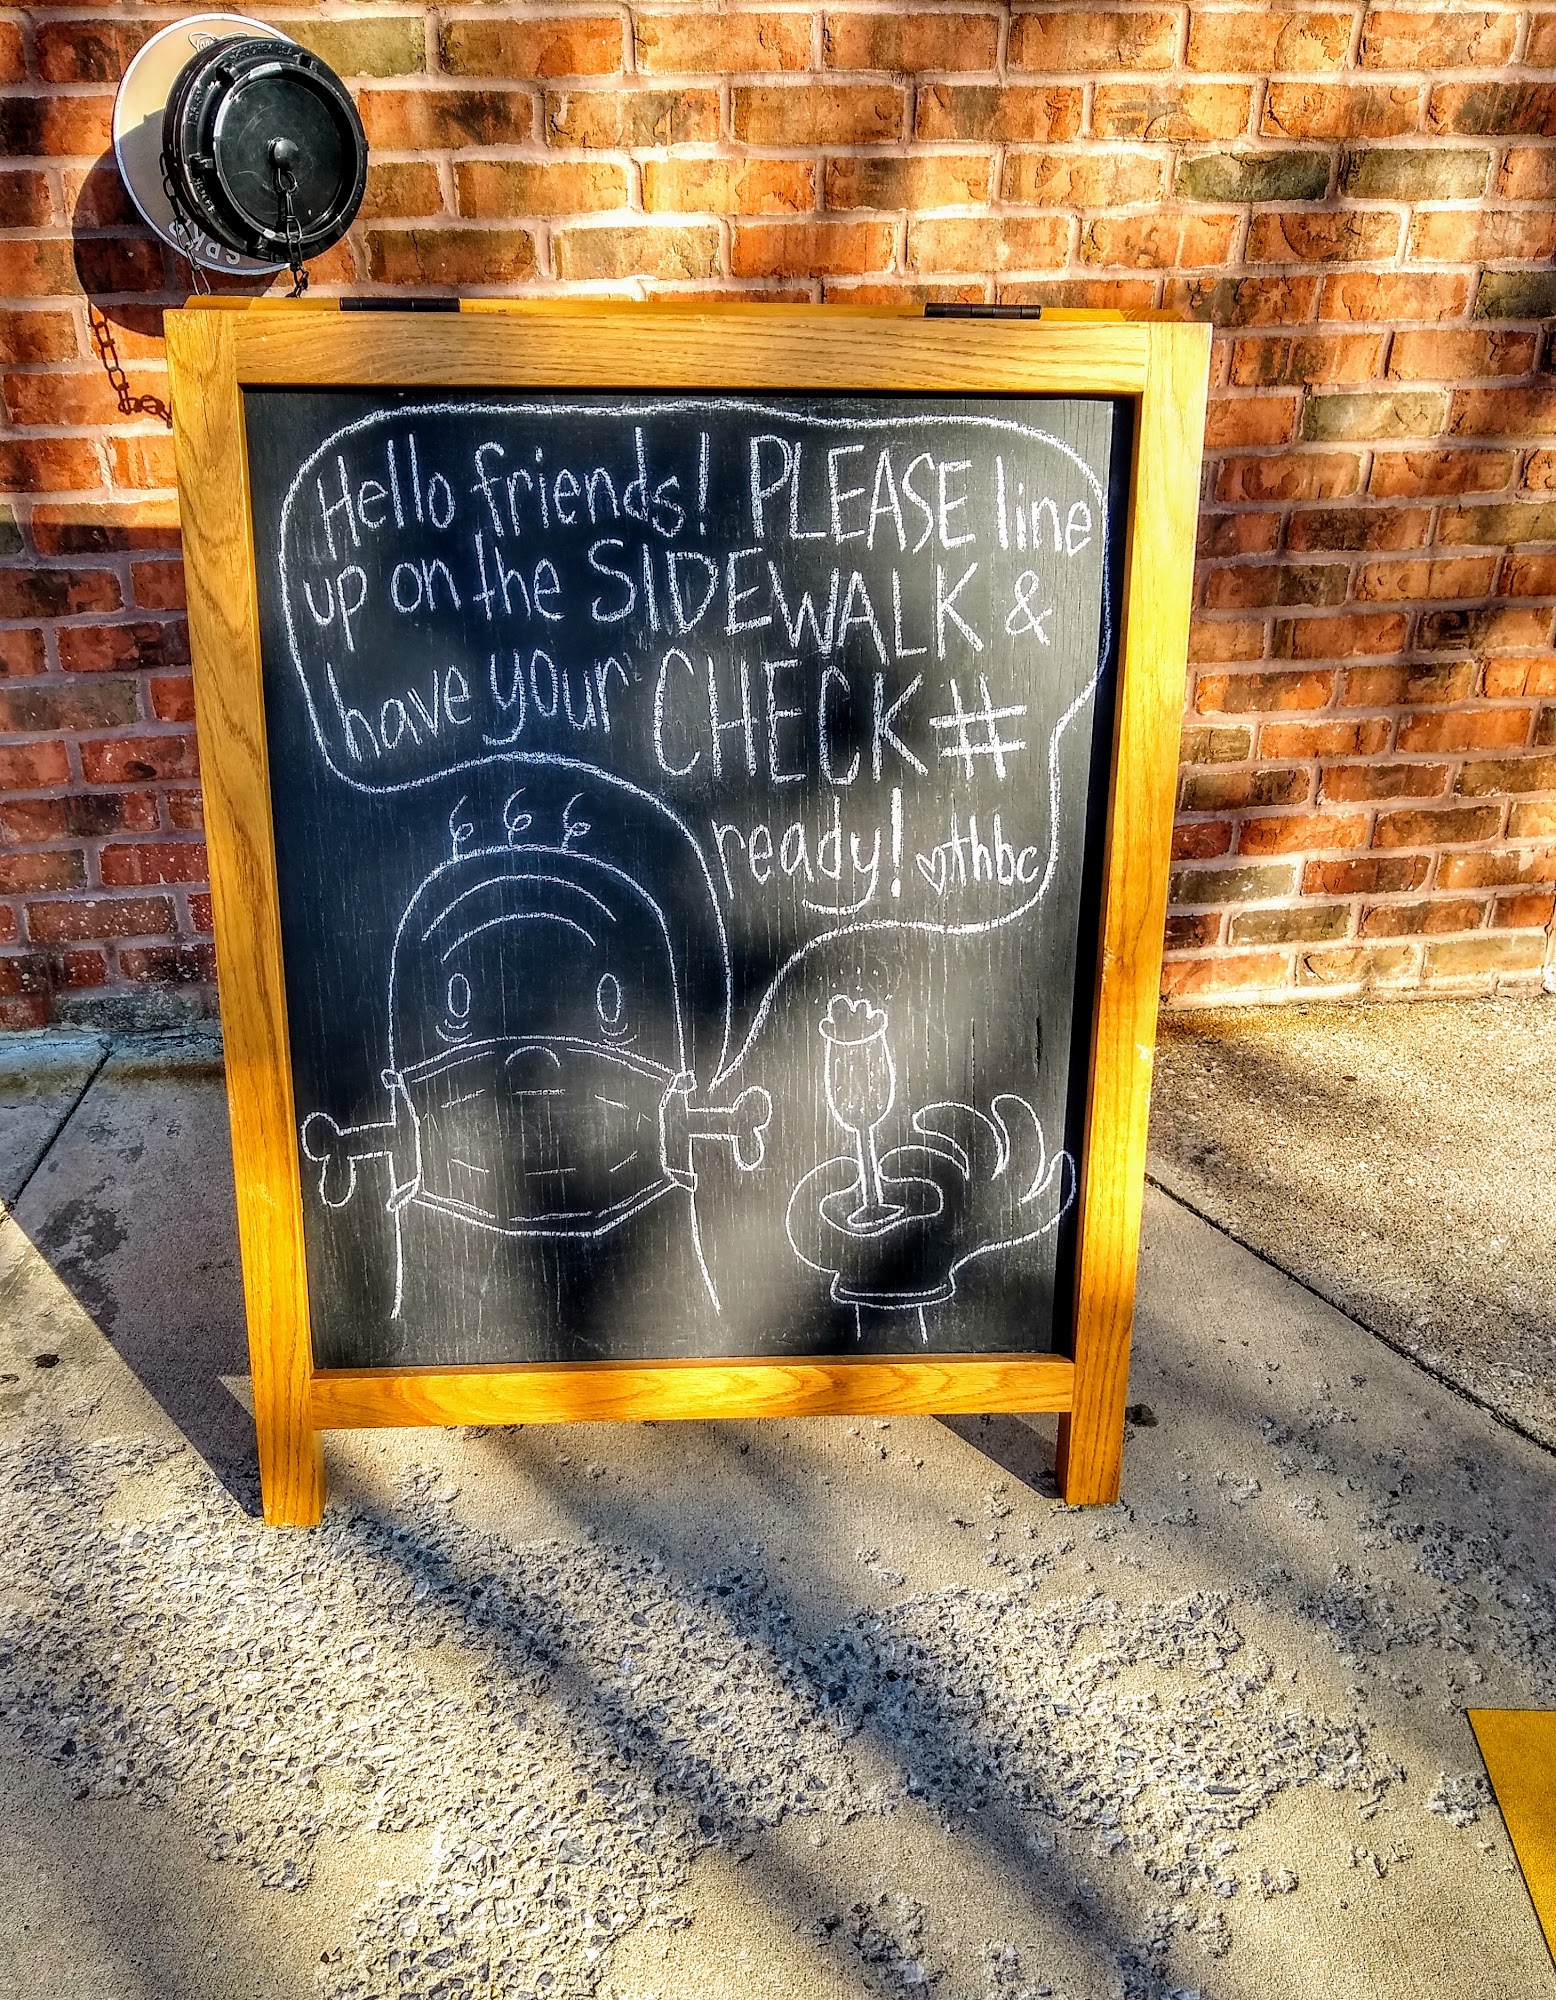 SPKR
Hello friends! PLEASE line
up on the SIDEWALK &
have your CHECK #
ready! ♡thbc